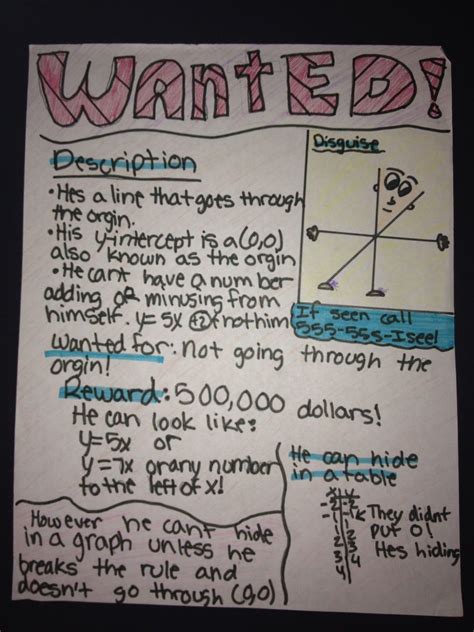 WANTED!
Description
• Hes a line that goes through
the orgin.
• His y-intercept is a (0,0)
also known as the orgin
• He cant have a number
adding or minusing from
himself. y= 5x +2 ≠ not him
Wanted for: Not going through the
orgin!
Reward: 500,000 dollars!
He can look like:
y=5x or
y=7x or any number
to the left of x!
However he cant hide
in a graph unless he
breaks the rule and
doesn't go through (0,0)
Disguise
If seen call
555-555-Isee!
He can hide
in a table
x y
They didnt
put 0!
Hes hiding